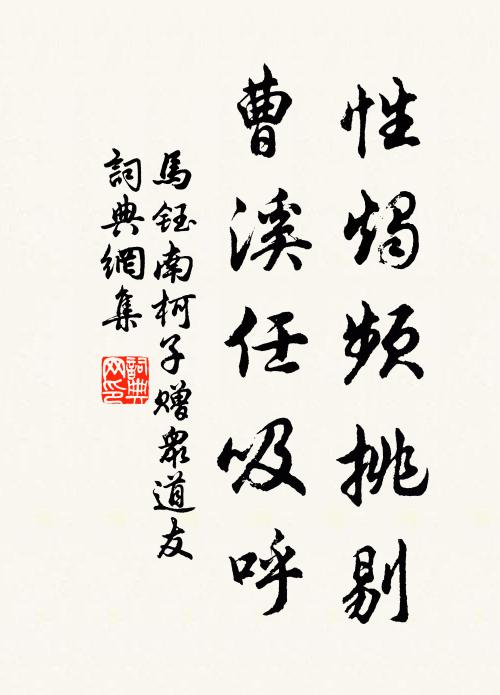 性燭頻挑剔
曹溪任吸呼
馬鈺南柯子贈眾道友
詞典網集
詞典网印